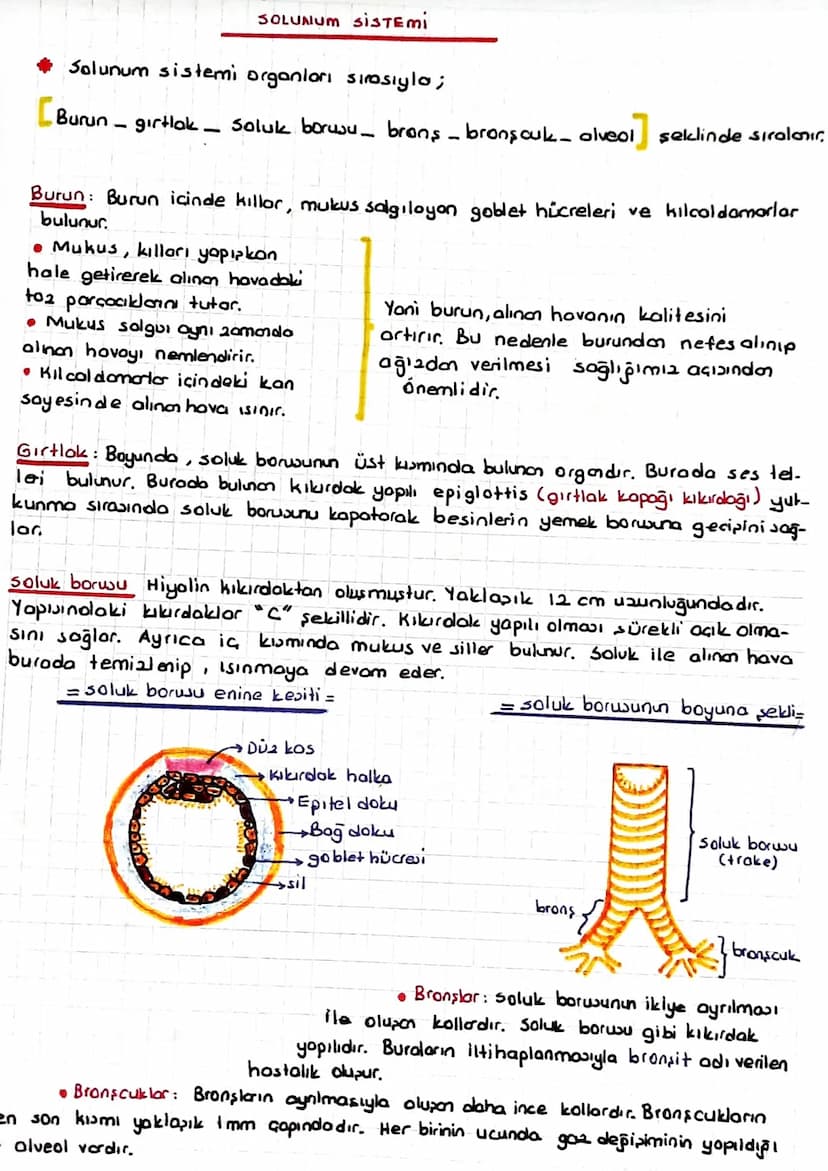 SOLUNUM SİSTEMİ
Solunum sistemi organları sırasıyla;
[Burun – gırtlak – Soluk borusu – bronş – bronşcuk – alveol] şeklinde sıralanır.
Burun: Burun içinde kıllar, mukus salgılayan goblet hücreleri ve kılcaldamarlar
bulunur.
• Mukus, kılları yapışkan
hale getirerek alınan havadaki
toz parçacıklarını tutar.
• Mukus salgısı aynı zamanda
alınan havayı nemlendirir.
• Kılcaldamarlar içindeki kan
sayesinde alınan hava ısınır.
Yani burun, alınan havanın kalitesini
artırır. Bu nedenle burundan nefes alınıp
ağızdan verilmesi sağlığımız açısından
önemlidir.
Gırtlak: Boyunda, soluk borusunun üst kısmında bulunan organdır. Burada ses tel-
leri bulunur. Burada bulunan kıkırdak yapılı epiglottis (gırtlak kapağı kıkırdağı) yut-
kunma sırasında soluk borusunu kapatarak besinlerin yemek borusuna geçişini sağ-
lar.
Soluk borusu Hiyalin kıkırdaktan oluşmuştur. Yaklaşık 12 cm uzunluğundadır.
Yapısındaki kıkırdaklar "C" şekillidir. Kıkırdak yapılı olması sürekli açık olma-
sını sağlar. Ayrıca iç kısmında mukus ve siller bulunur. Soluk ile alınan hava
burada temizlenip, ısınmaya devam eder.
= soluk borusu enine kesiti =
= soluk borusunun boyuna şekli=
Düz kas
Kıkırdak halka
Epitel doku
Bağ doku
goblet hücresi
sil
Soluk borusu
(trake)
bronş
bronşcuk
• Bronşlar: soluk borusunun ikiye ayrılması
ile oluşan kollardır. Soluk borusu gibi kıkırdak
yapılıdır. Buraların iltihaplanmasıyla bronşit adı verilen
hastalık oluşur.
• Bronşcuklar: Bronşların ayrılmasıyla oluşan daha ince kollardır. Bronşcukların
en son kısmı yaklaşık 1mm çapındadır. Her birinin ucunda gaz değişiminin yapıldığı
alveol vardır.